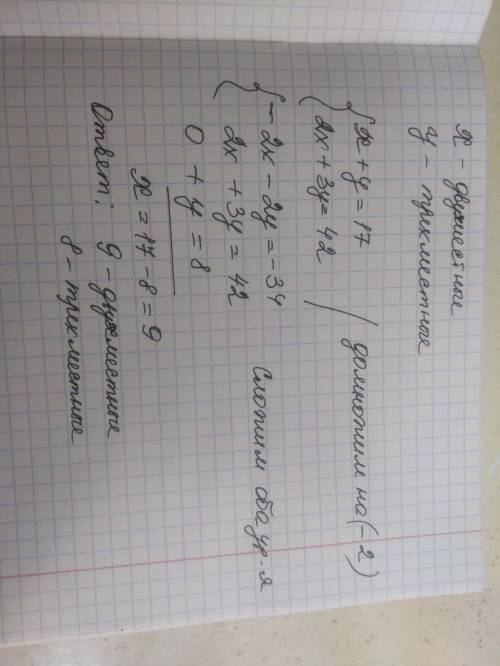 x - двухместные
y - трехместные
{ x + y = 17 / домножим на (-2)
2x + 3y = 42
{ - 2x - 2y = -34 Сложим оба ур-я
2x + 3y = 42
0 + y = 8
x = 17 - 8 = 9
Ответ: 9 - двухместные
8 - трехместные